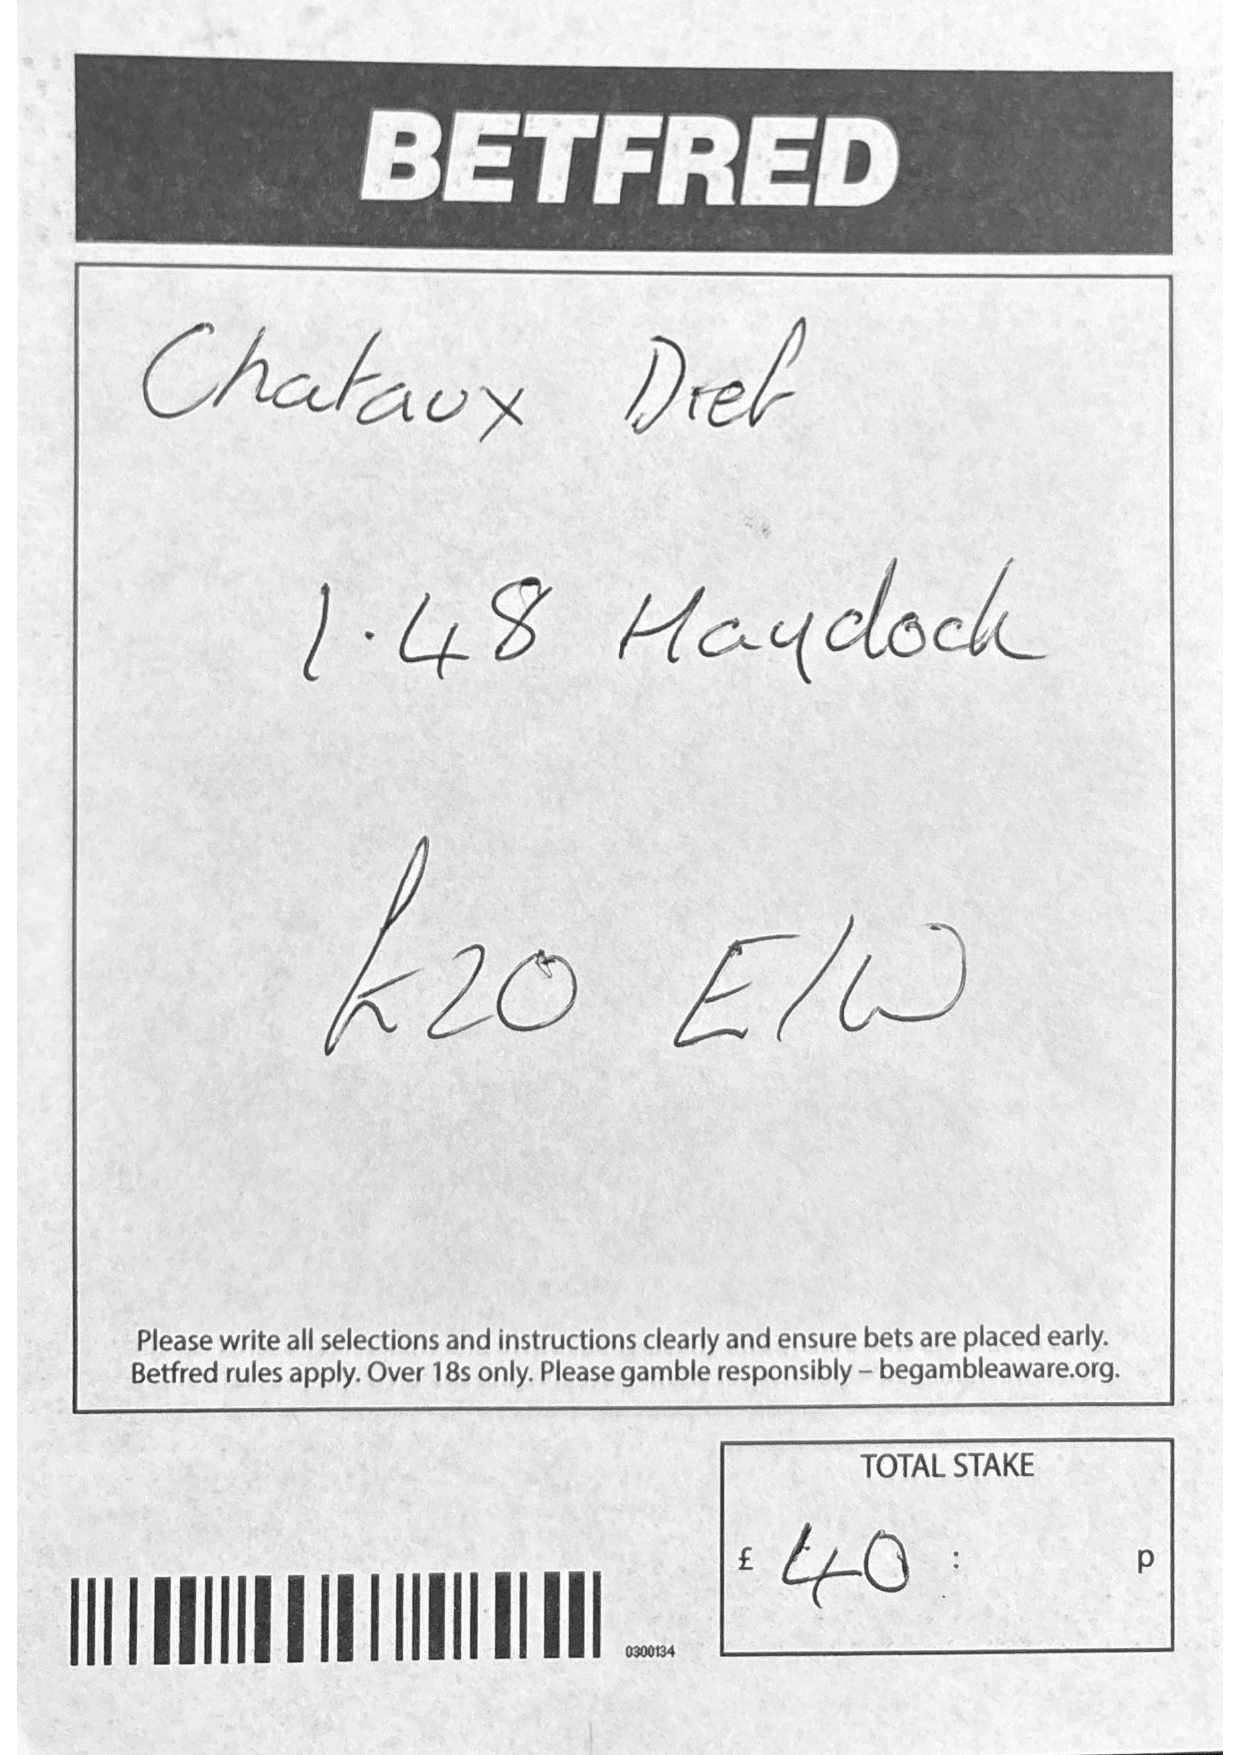 BETFRED
Chataux Dref
1.48 Haydock
£20 E/W
Please write all selections and instructions clearly and ensure bets are placed early.
Betfred rules apply. Over 18s only. Please gamble responsibly – begambleaware.org.
TOTAL STAKE
£ 40 : p
0300134